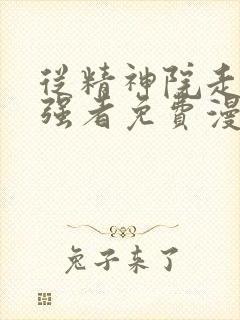 從精神院走
强者免費漫
兔子来了